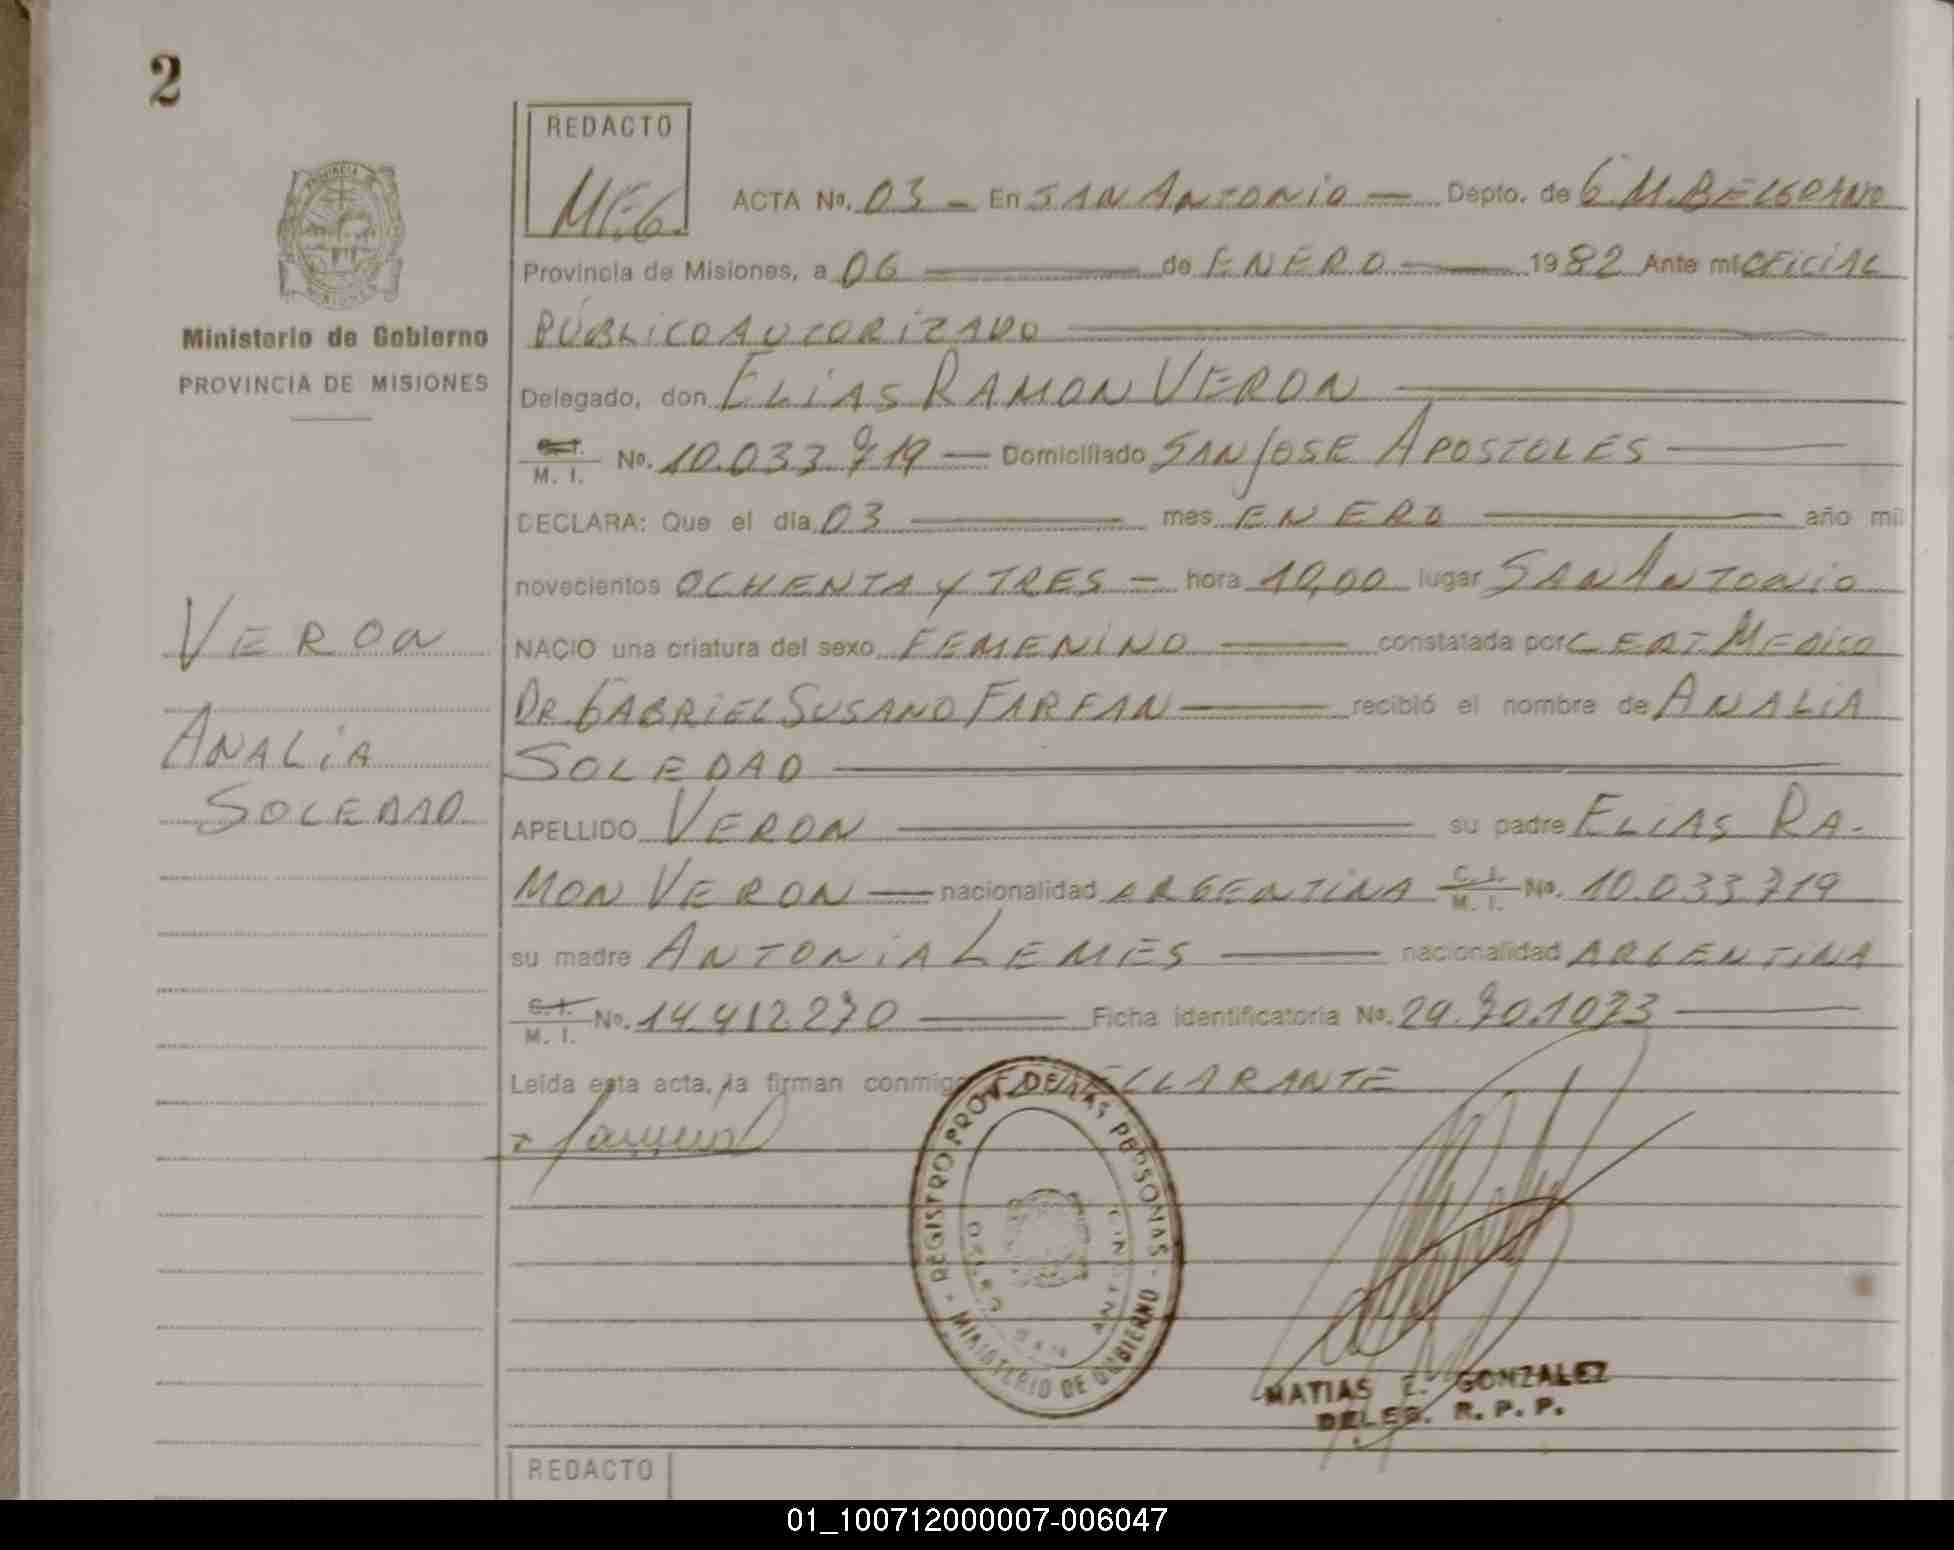 2
REDACTO
M.E.G.
ACTA No. 03 — En SAN ANTONIO — Depto. de G. M. BELGRANO
Provincia de Misiones, a 06 — de ENERO — 1982 Ante mi OFICIAL
PÚBLICO AUTORIZADO
Ministerio de Gobierno
PROVINCIA DE MISIONES
Delegado, don ELIAS RAMON VERON
C. I. M. I. No. 10.033.719 — Domiciliado SAN JOSE APOSTOLES
DECLARA: Que el día 03 — mes ENERO — año mil
novecientos OCHENTA Y TRES — hora 10,00 lugar SAN ANTONIO
VERON
NACIO una criatura del sexo FEMENINO — constatada por CERT. MEDICO
DR. GABRIEL SUSANO FARFAN — recibió el nombre de ANALIA
ANALIA
SOLEDAD
SOLEDAD
APELLIDO VERON — su padre ELIAS RA-
MON VERON — nacionalidad ARGENTINA C. I. M. I. No. 10.033.719
su madre ANTONIA LEMES — nacionalidad ARGENTINA
C. I. M. I. No. 14.412.270 — Ficha identificatoria No. 29.70.1073
Leída esta acta, la firman conmigo DECLARANTE
REGISTRO PROV. DE LAS PERSONAS - MINISTERIO DE GOBIERNO
MATIAS E. GONZALEZ
DELEG. R. P. P.
REDACTO
01_100712000007-006047